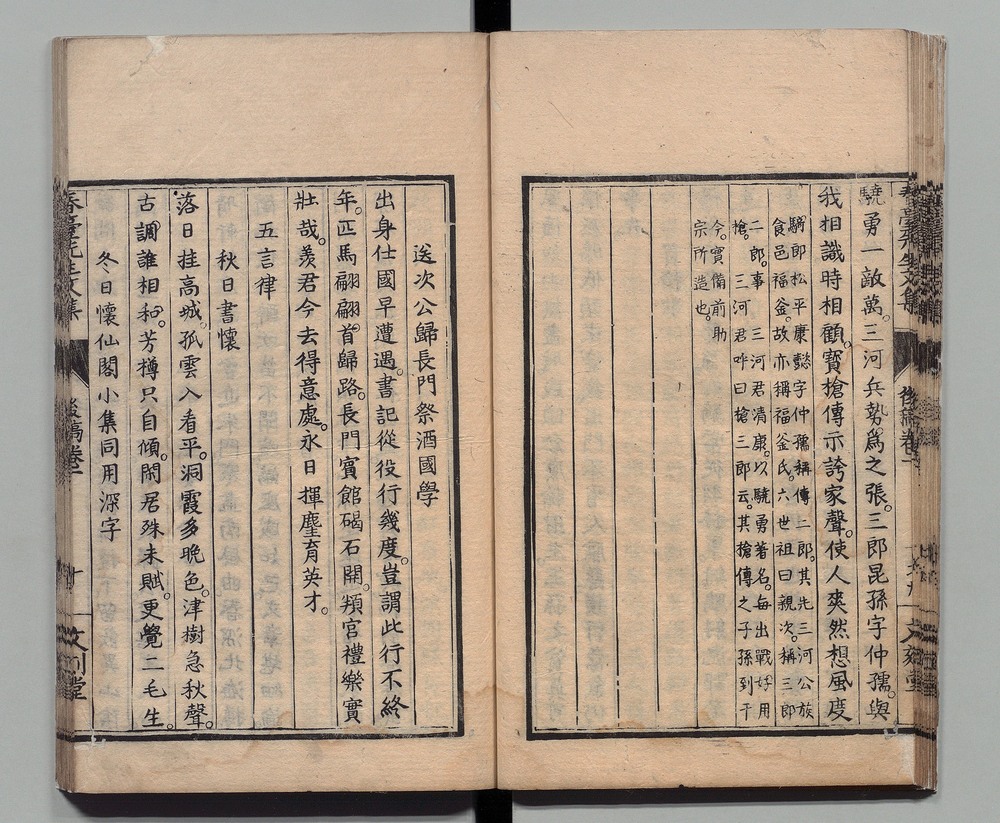 驍勇一敵萬。三河兵勢爲之張。三郎昆孫字仲孺。與
我相識時相顧。寳搶傳示誇家聲。使人爽然想風度
騎郎松平康懿字仲孺稱傳二郎。其先三河公族
食邑福釜。故亦稱福釜氏。六世祖曰親次。稱三郎
二郎。事三河君清康。以驍勇著名。每出戰好用
搶。三河君呼曰搶三郎云。其搶傳之子孫到于
今。實備前助
宗所造也。
送次公歸長門祭酒國學
出身仕國早遭遇。書記從役行幾度。豈謂此行不終
年。匹馬翩翩。首歸路。長門賓館碣石開。頖宮禮樂實
壯哉。羨君今去得意處。永日揮麈育英才。
五言律
秋日書懷
落日挂高城。孤雲入看平。洞霞多晩色。津樹急秋聲。
古調誰相和。芳樽只自傾。閑居殊未賦。更覺二毛生。
冬日懷仙閣小集同用深字
春臺先生文集
後稿卷一